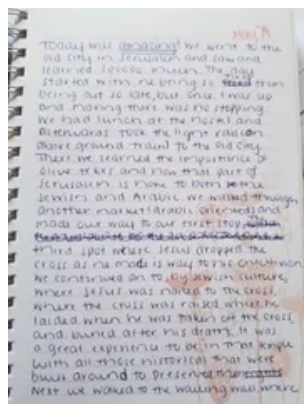 May 19
Today was amazing! We went to the
old city in Jerusalem and saw and
learned soooooo much. The
started with me being so tired from
being out so late, but once I was up
and moving there was no stopping.
We had lunch at the hostel and
afterwards took the light rail (an
above ground train) to the old city.
There we learned the importance of
olive trees and how that part of
Jerusalem is home to both the
Jewish and Arabic. We walked through
another market (arabic oriented) and
made our way to our first stop,
third spot where Jesus dropped the
cross as he made is way to his crucifixion.
We continued on to Jewish culture,
where Jesus was nailed to the cross,
where the cross was raised, where he
laided when he was taken off the cross,
and buried after his death. It was
a great experience to be in that
with all those historical that were
built around to preserve the
Next we walked to the wailing wall where